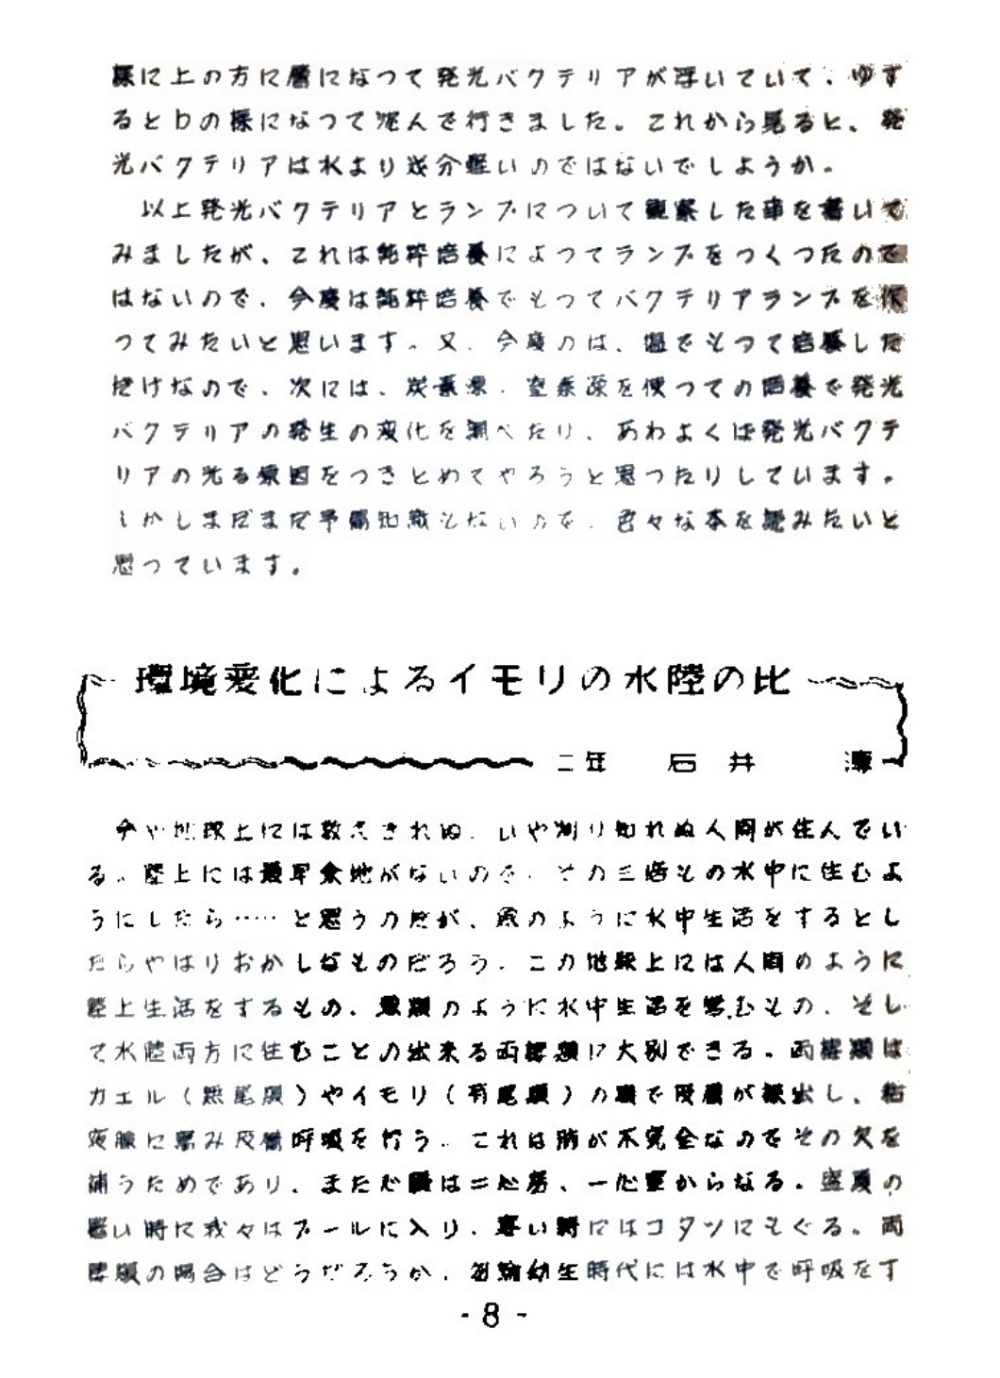 様に上の方に層になつて発光バクテリアが浮いていて、ゆす
るとbの様になつて混んで行きました。これから見ると、発
光バクテリアは水より幾分軽いのではないでしようか。
以上発光バクテリアとランプについて観察した事を書いて
みましたが、これは純粋培養によつてランプをつくつたので
はないので、今度は純粋培養でもつてバクテリアランプを作
つてみたいと思います。又、今度のは、塩でもつて培養した
だけなので、次には、炭素源、窒素源を使つての培養で発光
バクテリアの発生の変化を調べたり、あわよくば発光バクテ
リアの光る原因をつきとめてやろうと思つたりしています。
しかしまだまだ予備知識もないので、色々な本を読みたいと
思つています。
環境変化によるイモリの水陸の比
二年 石井
今や地球上には数えきれぬ、いや測り知れぬ人間が住んでい
る。陸上には最早余地がないので、その三倍もの水中に住むよ
うにしたら……と思うのだが、魚のように水中生活をするとし
たらやはりおかしなものだろう。この地球上には人間のように
陸上生活をするもの、魚類のように水中生活を営むもの、そし
て水陸両方に住むことの出来る両棲類に大別できる。両棲類は
カエル(無尾類)やイモリ(有尾類)の様で皮膚が露出し、粘
液腺に富み皮膚呼吸を行う。これは肺が不完全なのでその欠を
補うためであり、また心臓は二心房、一心室からなる。盛夏の
暑い時に我々はプールに入り、寒い時にはコタツにもぐる。両
棲類の場合はどうだろうか。勿論幼生時代には水中で呼吸をす
- 8 -